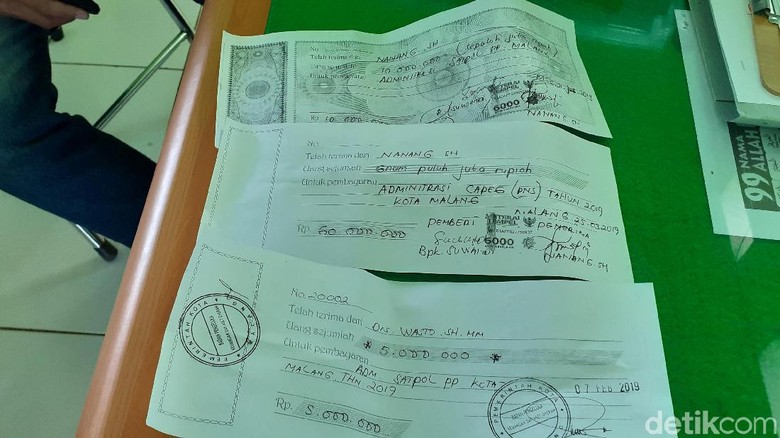 No.
Telah terima dari NANANG SH
Uang sejumlah 10.000.000 (sepuluh juta rupiah)
Untuk pembayaran ADMINITRASI SATPOL PP. MALANG
Rp. 10.000.000
6000
NANANG
No.
Telah terima dari NANANG SH
Uang sejumlah Enam puluh juta rupiah
Untuk pembayaran ADMINITRASI CAPEG (PNS) TAHUN 2019
KOTA MALANG
MALANG 25-03-2019
PEMBERI PENERIMA
METERAI TEMPEL
6000
Rp. 60.000.000
Bpk. SUWAJI
NANANG. SH
No. 20002
Telah terima dari DRS. WASTO. SH. MM
Uang sejumlah * 5.000.000 *
Untuk pembayaran ADM SATPOL PP KOTA
MALANG THN 2019
07 FEB 2019
Rp. 5.000.000
PEMERINTAH KOTA
PEMERINTAH KOTA
99 NAMA
ALLAH
detikcom